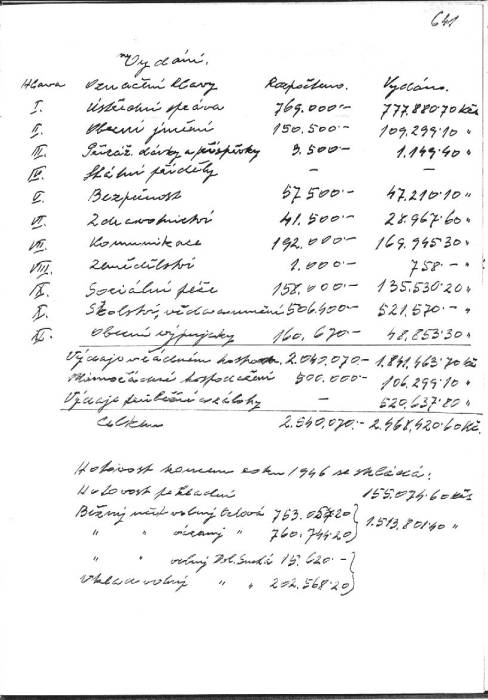 641
Vydání.
Hlava Označení hlavy Rozpočteno. Vydáno.
I. Ústřední správa 769.000·– 777.880·70 Kčs
II. Obecní jmění 150.500·– 109.299·10 "
III. Převáž. dávky a příspěvky 3.500·– 1.149·40 "
IV. Státní příděly – –
V. Bezpečnost 57.500·– 47.210·10 "
VI. Zdravotnictví 41.500·– 28.967·60 "
VII. Komunikace 192.000·– 169.945·30 "
VIII. Zemědělství 1.000·– 758·– "
IX. Sociální péče 158.000·– 135.530·20 "
X. Školství, věda a umění 506.400·– 521.570·– "
XI. Obecní výpujčky 160.670·– 48.853·30 "
Výdaje řádném hospod. 2.040.070·– 1.841.463·70 Kčs
Mimořádné hospodaření 500.000·– 106.299·10 "
Výdaje průběžné a zálohy – 520.637·80 "
Celkem 2.540.070·– 2.468.420·60 Kčs.
Hotovost koncem roku 1946 se skládá:
Hotovost pokladní 155.074·60 Kčs
Běžný účet volný 753.057·20 } 1.513.801·40 "
" " vázaný " 760.744·20
" " volný Dol. Suchá 15.620·–
Vklad volný " " 202.568·20